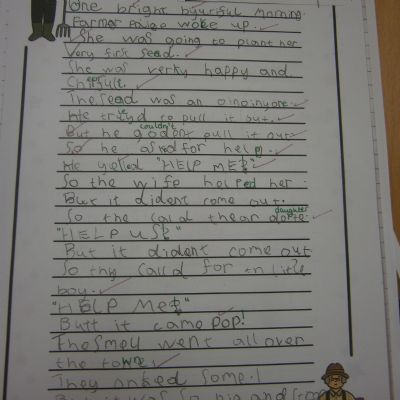 One bright byutiful morning.
Farmer woke up.
She was going to plant her
very first seed.
She was verky happy and
Chirfull. eer
The seed was an
He tryd to pull it out.
But he godent pull it out couldn't
So he asked for help.
He yelled "HELP ME!"
So the wife helped her.
But it dident come out.
So the calld thear dorte. daughter
"HELP US!"
But it dident come out
So thy calld for little
boy.
"HELP ME!"
Butt it came pop!
The smel went all over
the towne.
They some.
But it was so big and